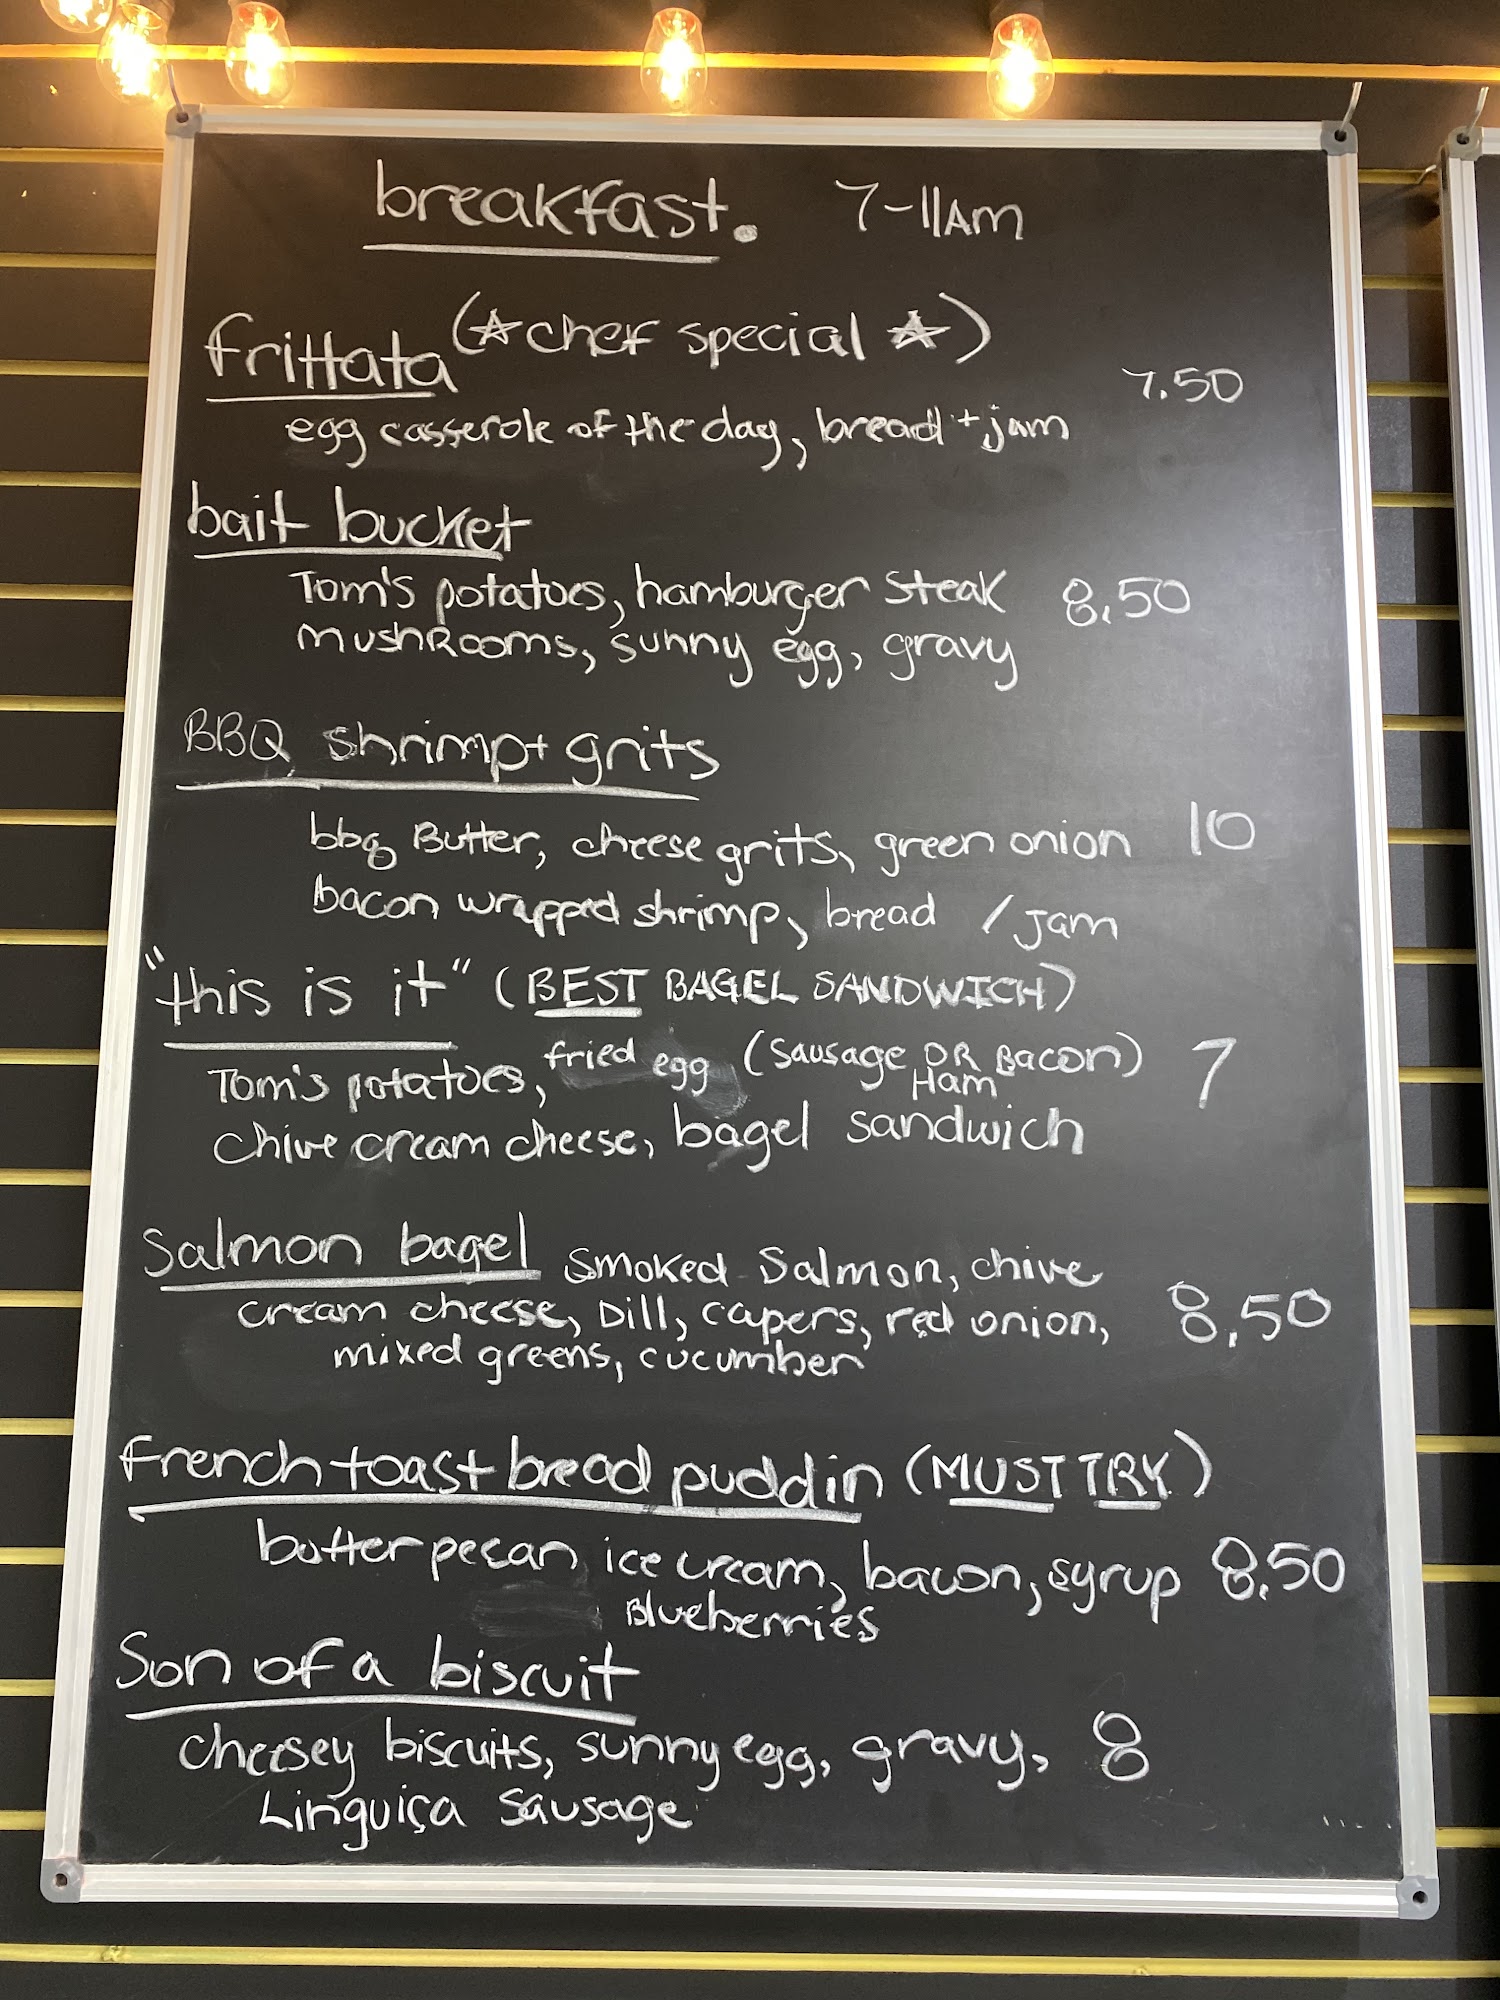 breakfast. 7-11AM
frittata (☆chef special☆)
7.50
egg casserole of the day, bread + jam
bait bucket
Tom's potatoes, hamburger steak 8.50
mushRooms, sunny egg, gravy
BBQ shrimp + grits
bbq Butter, cheese grits, green onion 10
bacon wrapped shrimp, bread / jam
"this is it" (BEST BAGEL SANDWICH)
Tom's potatoes, fried egg (Sausage OR Bacon) 7
Ham
chive cream cheese, bagel sandwich
Salmon bagel smoked salmon, chive
cream cheese, Dill, capers, red onion, 8.50
mixed greens, cucumber
french toast bread puddin (MUST TRY)
butter pecan ice cream, bacon, syrup 8.50
Blueberries
Son of a biscuit
cheesey biscuits, sunny egg, gravy, 8
Linguiça Sausage